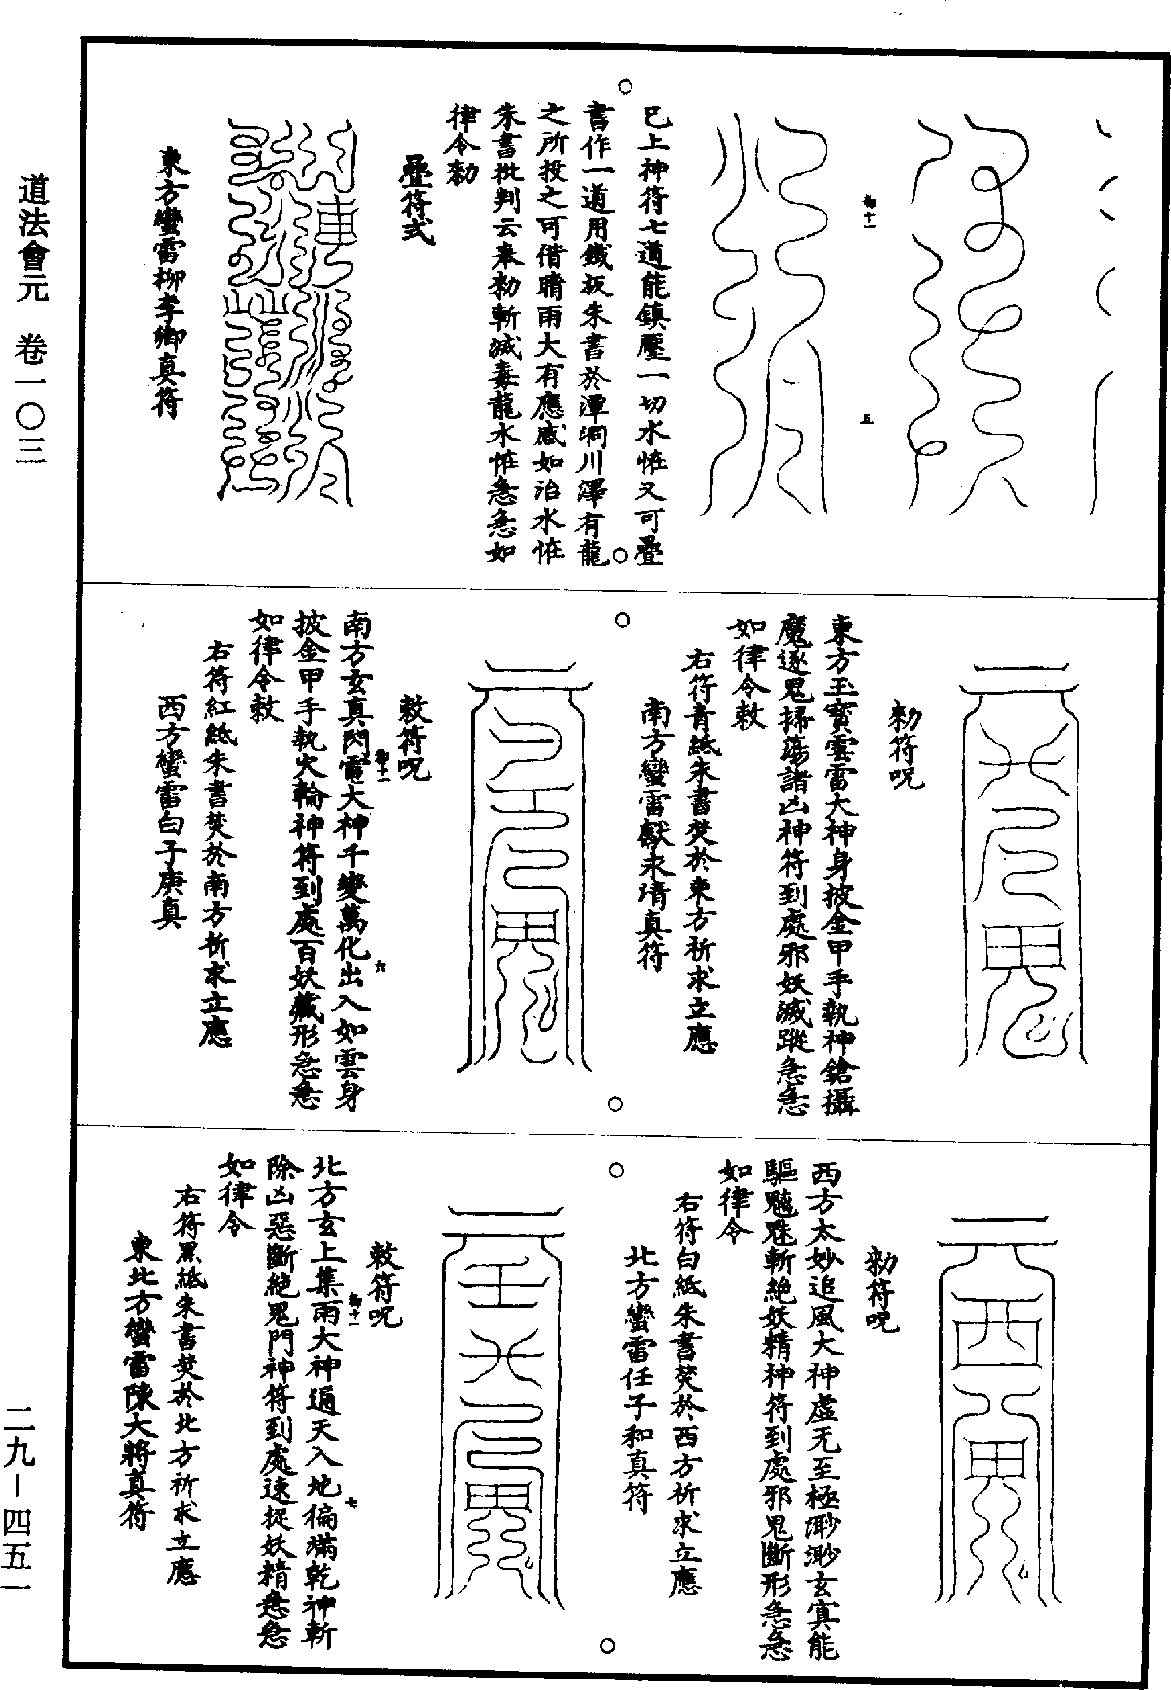 已上神符七道能鎮壓一切水恠又可疊
書作一道用鐵板朱書於潭洞川澤有龍
之所投之可借晴雨大有應感如治水恠
朱書批判云奉勑斬滅毒龍水恠急急如
律令勑
疊符式
東方蠻雷柳孝卿真符
勑符呪
東方玉寳雲雷大神身披金甲手執神鎗攝
魔逐鬼掃蕩諸凶神符到處邪妖滅蹤急急
如律令敕
右符青紙朱書焚於東方祈求立應
南方蠻雷獻永清真符
敕符呪
南方玄真閃電大神千變萬化出入如雲身
披金甲手執火輪神符到處百妖藏形急急
如律令敕
右符紅紙朱書焚於南方祈求立應
西方蠻雷白子庚真
勑符呪
西方太妙追風大神虛无至極渺渺玄㝠能
驅魑魅斬絶妖精神符到處邪鬼斷形急急
如律令
右符白紙朱書焚於西方祈求立應
北方蠻雷任子和真符
敕符呪
北方玄上集雨大神遍天入地徧滿乾神斬
除凶惡斷絶鬼門神符到處速捉妖精急急
如律令
右符黑紙朱書焚於北方祈求立應
東北方蠻雷陳大將真符
道法會元　卷一〇三
二九－四五一